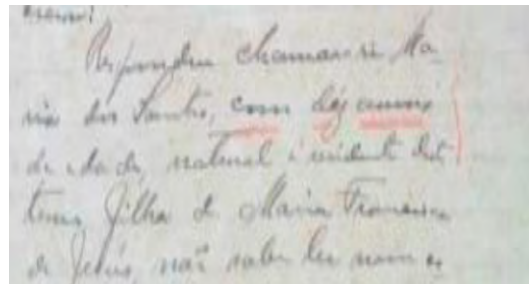 Respondeu chamar-se Ma-
ria dos Santos, com dez annos
de idade, natural e residente
termo, filha de Maria Francisca
de Jesús, não sabe ler nem es-